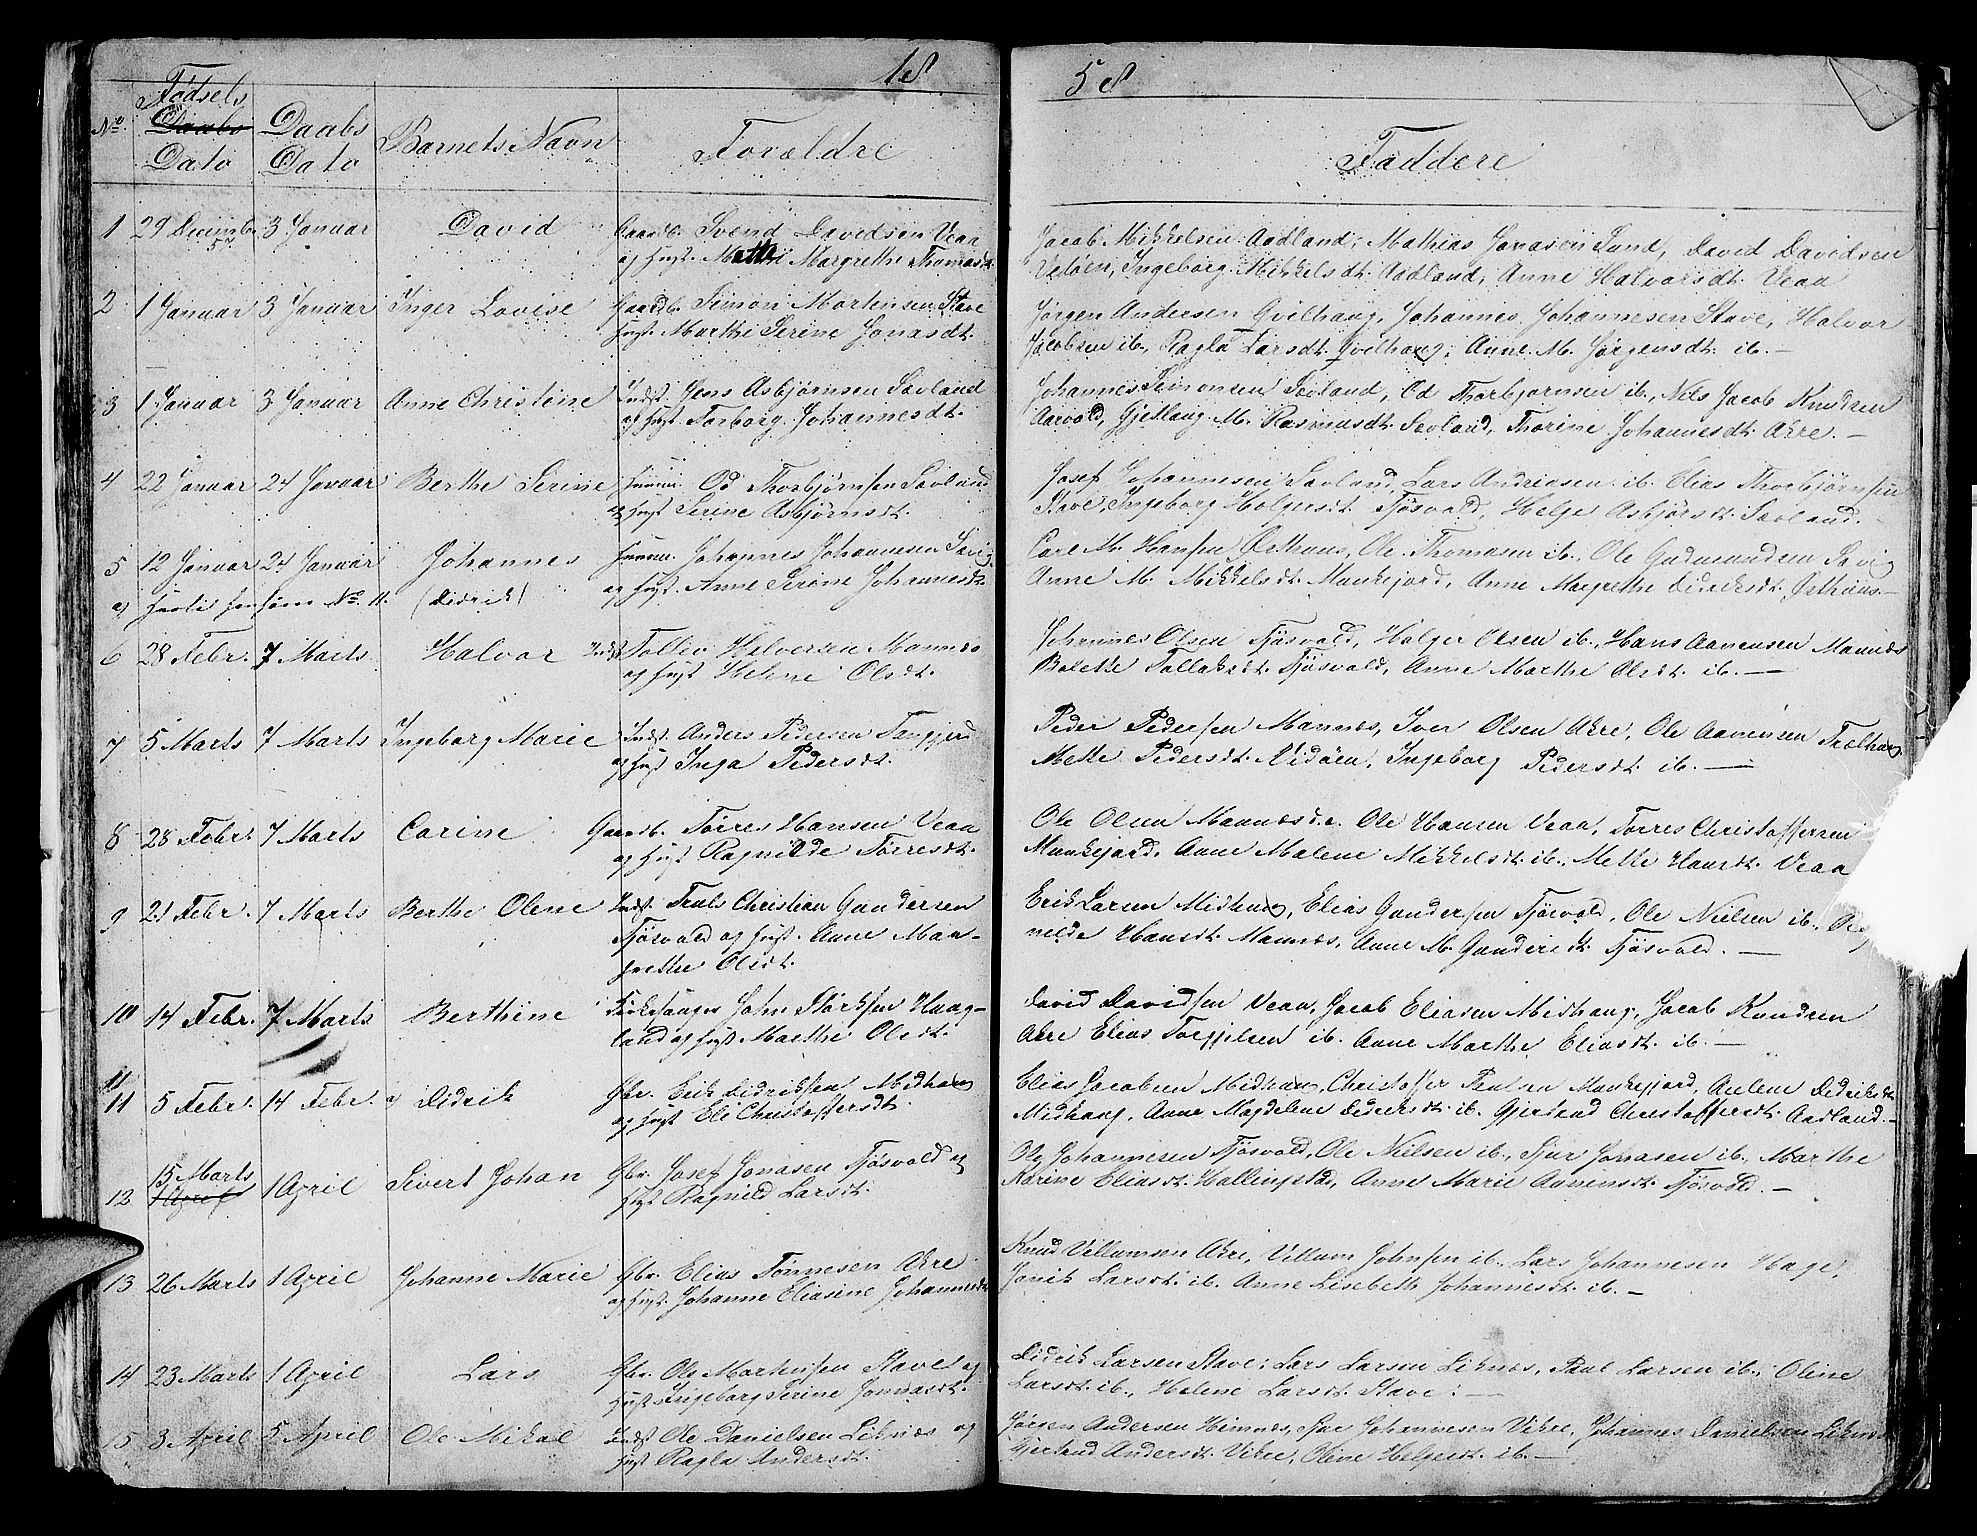 18
58
No
Fødsels
Daabs
Dato
Daabs
Dato
Barnets Navn
Forældre
Faddere
1 29 Decemb. 57 3 Januar David Gaardb. Svend Davidsen Veaa
og Hust. Margrethe Thomasdt.
Jacob Mikkelsen Aadland, Mathias Jonason Sund, David Davidsen
Ingeborg Mikkelsdt. Aadland, Anne Halvorsdt. Veaa
2 1 Januar 3 Januar Inger Lovise Gaardb. Simon Mortensen Stave
Hust. Marthe Serine Jonasdt.
Jørgen Andersen Qvilhaug, Johannes Johannesen Stave, Halvor
Jacobsen ib., Ragla Larsdt. Qvilhaug, Anne M. Jørgensdt. ib. —
3 1 Januar 3 Januar Anne Christine Indst. Jens Asbjørnsen Sevland
og Hust. Torborg Johannesdt.
Johannes Simonsen Sevland, Od Thorbjørnsen ib., Nils Jacob Knudsen
M. Rasmusdt. Sevland, Thorine Johannesdt. Akre. —
4 22 Januar 24 Januar Berthe Serine Od Thorbjørnsen Sevland
og Hust Serine Asbjørnsdt.
Josef Johannesen Sevland, Lars Andreasen ib. Elias Thorbjørnsen
Stave, Ingeborg Holgersdt. Tjøsvold, Helge Asbjørsdt. Sevland.
5 12 Januar 24 Januar Johannes Johannes Johannesen Sævig
og Hust. Anne Serine Johannesdt.
Carl M. Hansen Østhuus, Ole Thomasen ib., Ole Gudmundsen Sævig
Anne M. Mikkelsdt. Munkejord, Anne Margrethe Didriksdt. Østhuus. —
a) No. 11. (Didrik)
6 28 Febr. 7 Marts Halvor Indst Tollev Halvorsen Mannes
og Hust Helene Olsdt.
Johannes Olsen Tjøsvold, Holger Olsen ib., Hans Aanensen Mannes
Bolette Tollaksdt. Tjøsvold, Anne Marthe Olsdt. ib. —
7 5 Marts 7 Marts Ingeborg Marie Indst. Anders Pedersen
og Hust Inga Pedersdt.
Peder Pedersen Mannes, Iver Olsen Akre, Ole Aanensen Trælhaug
Mette Pedersdt. Vidøen, Ingeborg Pedersdt. ib. —
8 28 Febr. 7 Marts Carine Gaardb. Tørres Hansen Veaa
og Hust Ragnilde Tørresdt.
Ole Olsen Ole Hansen Veaa, Tørres Christoffersen
Munkejord, Anne Malene Mikkelsdt. ib., Mette Hansdt. Veaa
9 21 Febr. 7 Marts Berthe Olene Indst. Truls Christian Gundersen
Tjøsvold og Hust. Anne Mar-
grethe Olsdt.
Erik Larsen Midhaug, Elias Gundersen Tjøsvold, Ole Nielsen ib.,
nilde Hansdt. Mannes, Anne M. Gundersdt. Tjøsvold. —
10 14 Febr. 7 Marts Berthine Kirkesanger John Størksen Haug-
land og Hust. Marthe Olsdt.
David Davidsen Veaa, Jacob Eliasen Midhaug, Jacob Knudsen
Akre Elias Torgjilsen ib. Anne Marthe Eliasdt. ib. —
11
11 5 Febr. 14 Febr. a) Didrik Gbr. Erik Didriksen Midhaug
og Hust Eli Christoffersdt.
Elias Jacobsen Midhaug, Christoffer Munkejord, Aselene Didriksdt.
Midhaug, Anne Magdelene Didriksdt. ib. Gjertrud Christoffersdt. Aadland. —
12 15 Marts 1 April 1 April Sivert Johan Gbr. Josef Jonasen Tjøsvold og
Hust Ragnild Larsdt.
Ole Johannesen Tjøsvold, Ole Nielsen ib., Sjur Jonasen ib., Marthe
Karine Eliasdt. Hallingstad, Anne Marie Aanensdt. Tjøsvold. —
13 26 Marts 1 April Johanne Marie Gbr. Elias Tønnesen Akre
og Hust. Johanne Eliasine Johannesdt.
Knud Villumsen Akre, Villum Johnsen ib., Lars Johannesen Hage,
Larsdt. ib. Anne Lisebeth Johannesdt. ib. —
14 23 Marts 1 April Lars Gbr. Ole Mortensen Stave og
Hust Ingeborg Serine Jonnasdt.
Didrik Larsen Stave, Lars Larsen Liknes, Paul Larsen ib., Oline
Larsdt. ib., Helene Larsdt. Stave. —
15 3 April 5 April Ole Mikal Indst Ole Danielsen Liknes og
Hust Ragla Andersdt.
Jørgen Andersen Hemnes, Johannesen Vikre, Johannes Danielsen Liknes
Gjertrud Andersdt. Vikre, Oline Helgesdt. ib. —